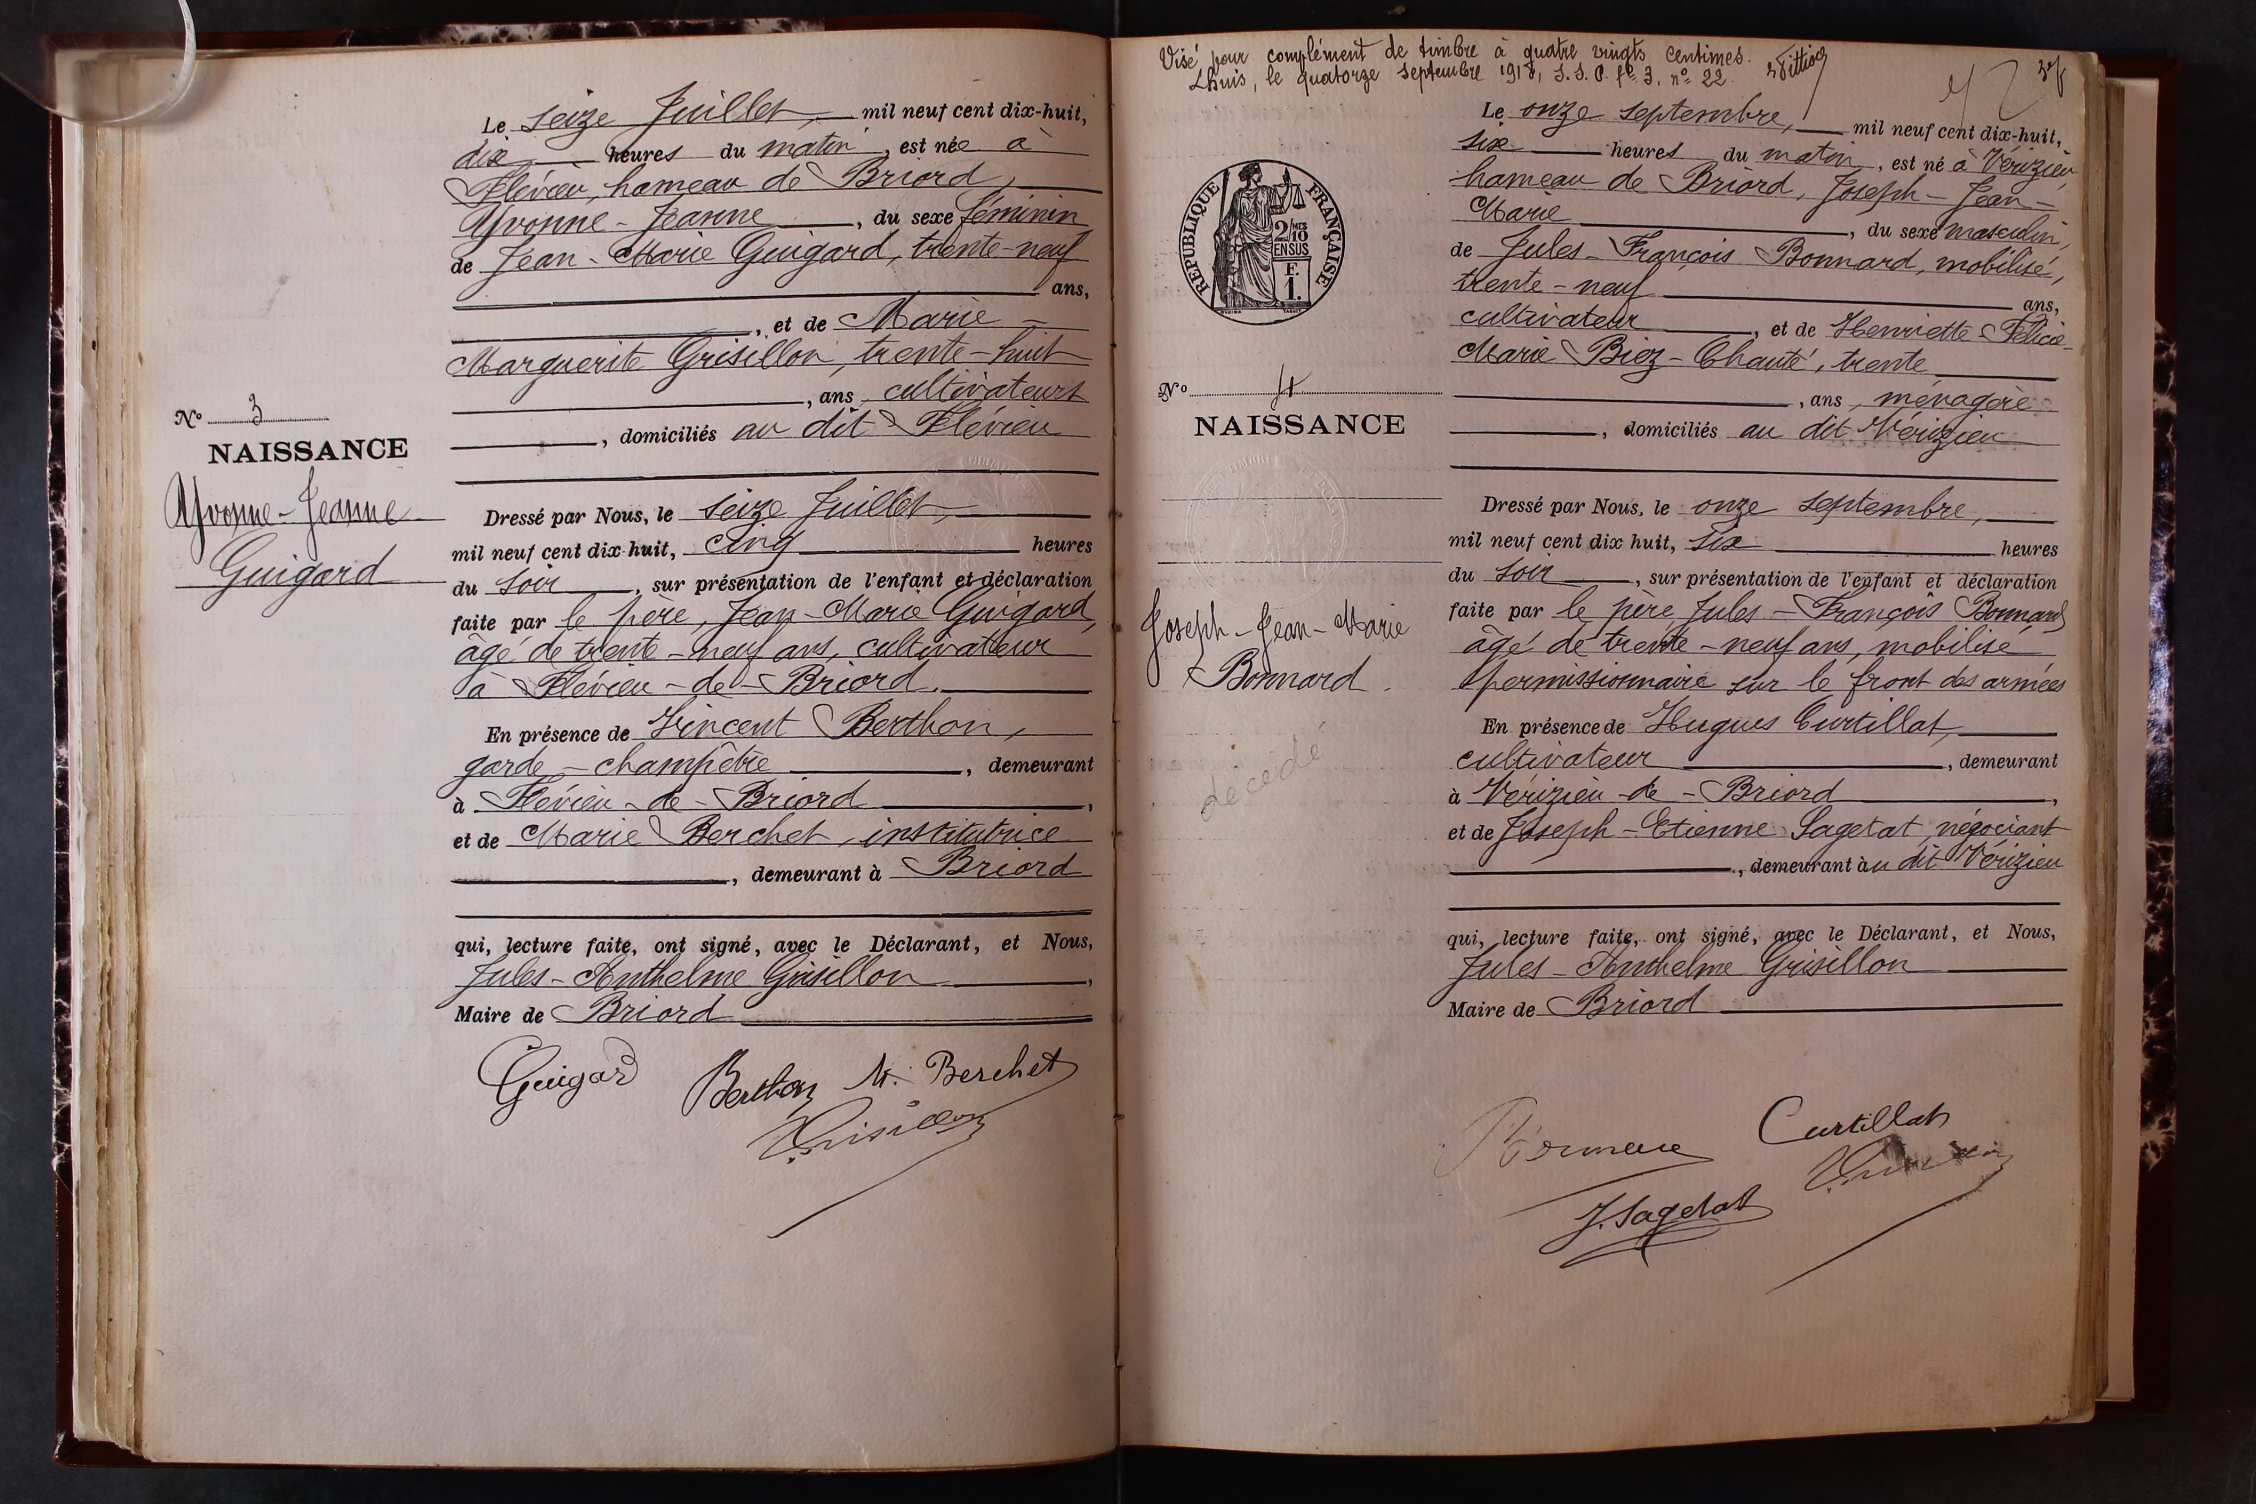 Le seize Juillet, mil neuf cent dix-huit,
dix heures du matin, est née à
Flévieu, hameau de Briord,
Yvonne-Jeanne, du sexe féminin
de Jean-Marie Guigard, trente-neuf
ans,
, et de Marie-
Marguerite Grisillon, trente-huit
, ans, cultivateurs
, domiciliés au dit Flévieu
N° 3
NAISSANCE
Yvonne-Jeanne
Guigard
Dressé par Nous, le seize Juillet,
mil neuf cent dix-huit, cinq heures
du soir, sur présentation de l'enfant et déclaration
faite par le père, Jean-Marie Guigard,
âgé de trente-neuf ans, cultivateur
à Flévieu-de-Briord.
En présence de Vincent Berthon,
garde-champêtre, demeurant
à Flévieu-de-Briord,
et de Marie Berchet, institutrice
, demeurant à Briord
qui, lecture faite, ont signé, avec le Déclarant, et Nous,
Jules-Anthelme Grisillon,
Maire de Briord
Guigard Berthon M. Berchet
Grisillon
Visé pour complément de timbre à quatre vingts centimes.
Lhuis, le quatorze septembre 1918, S.S.P. f° 3, n° 22
Le onze septembre, mil neuf cent dix-huit,
six heures du matin, est né à Vérizieu,
hameau de Briord, Joseph-Jean-
Marie, du sexe masculin,
de Jules-François Bonnard, mobilisé,
trente-neuf ans,
cultivateur, et de Henriette-Félicie-
Marie Biez-Chauté, trente
, ans, ménagère
, domiciliés au dit Vérizieu
RÉPUBLIQUE FRANÇAISE
2/10MES
EN SUS
F.
1.
N° 4
NAISSANCE
Joseph-Jean-Marie
Bonnard
décédé
Dressé par Nous, le onze septembre,
mil neuf cent dix huit, six heures
du soir, sur présentation de l'enfant et déclaration
faite par le père, Jules-François Bonnard
âgé de trente-neuf ans, mobilisé
permissionnaire sur le front des armées
En présence de Hugues Curtillat,
cultivateur, demeurant
à Vérizieu-de-Briord,
et de Joseph-Etienne Sagetat, négociant
, demeurant au dit Vérizieu
qui, lecture faite, ont signé, avec le Déclarant, et Nous,
Jules-Anthelme Grisillon
Maire de Briord
Curtillat
J. Sagetat